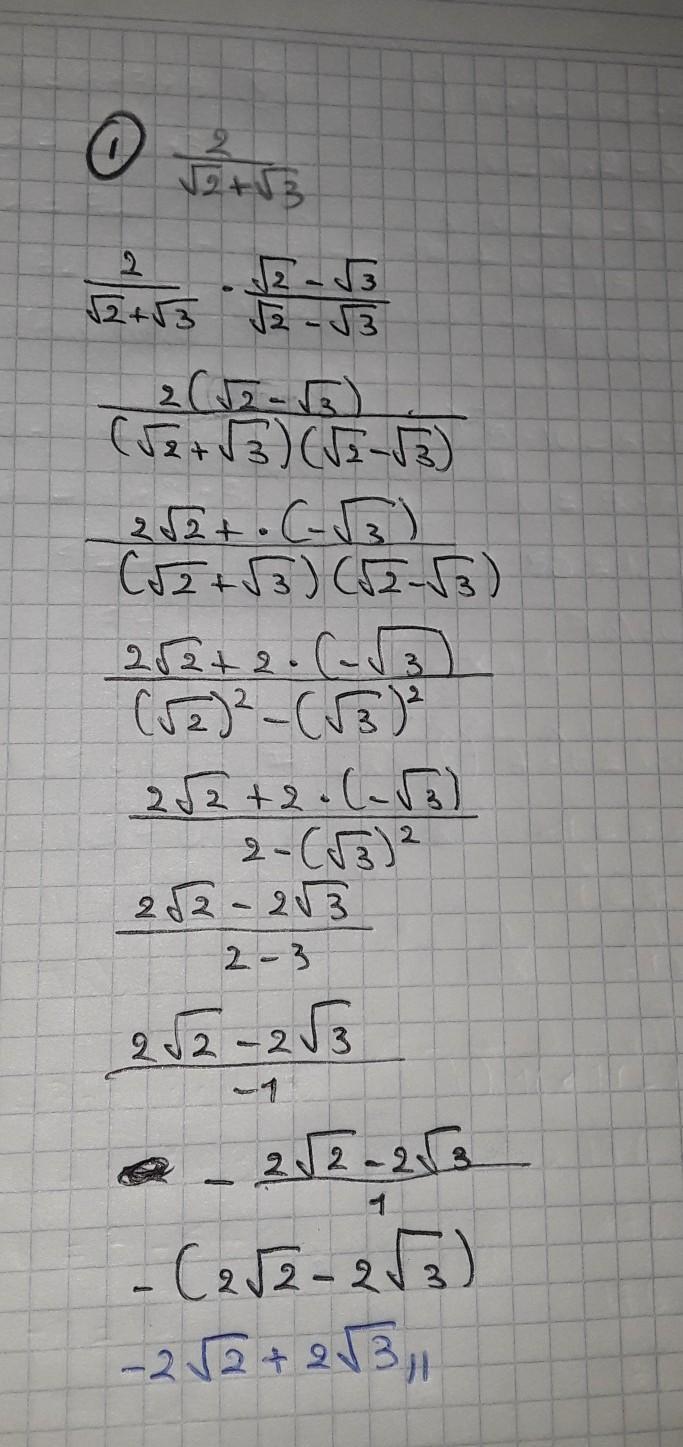 ① 2/(√2+√3)
2/(√2+√3) · (√2 - √3)/(√2 - √3)
2(√2-√3)/((√2+√3)(√2-√3))
(2√2+·(-√3))/((√2+√3)(√2-√3))
(2√2+2·(-√3))/((√2)²-(√3)²)
(2√2+2·(-√3))/(2-(√3)²)
(2√2-2√3)/(2-3)
(2√2-2√3)/(-1)
- (2√2-2√3)/1
-(2√2-2√3)
-2√2+2√3,,